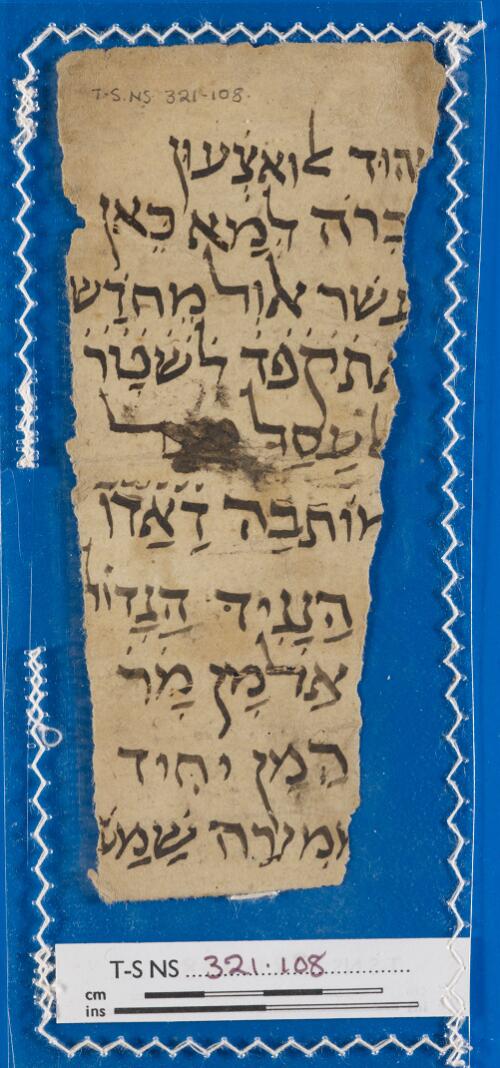 T-S.NS 321-108
יהוד לואצעון
ברה למא כאן
עשר אול מחדש
תקפד לשטור
עסל
ותבה דאדו
העיד הגדול
אלמן מר
המן יחיד
ומערה שמש
T-S NS 321.108
cm
ins